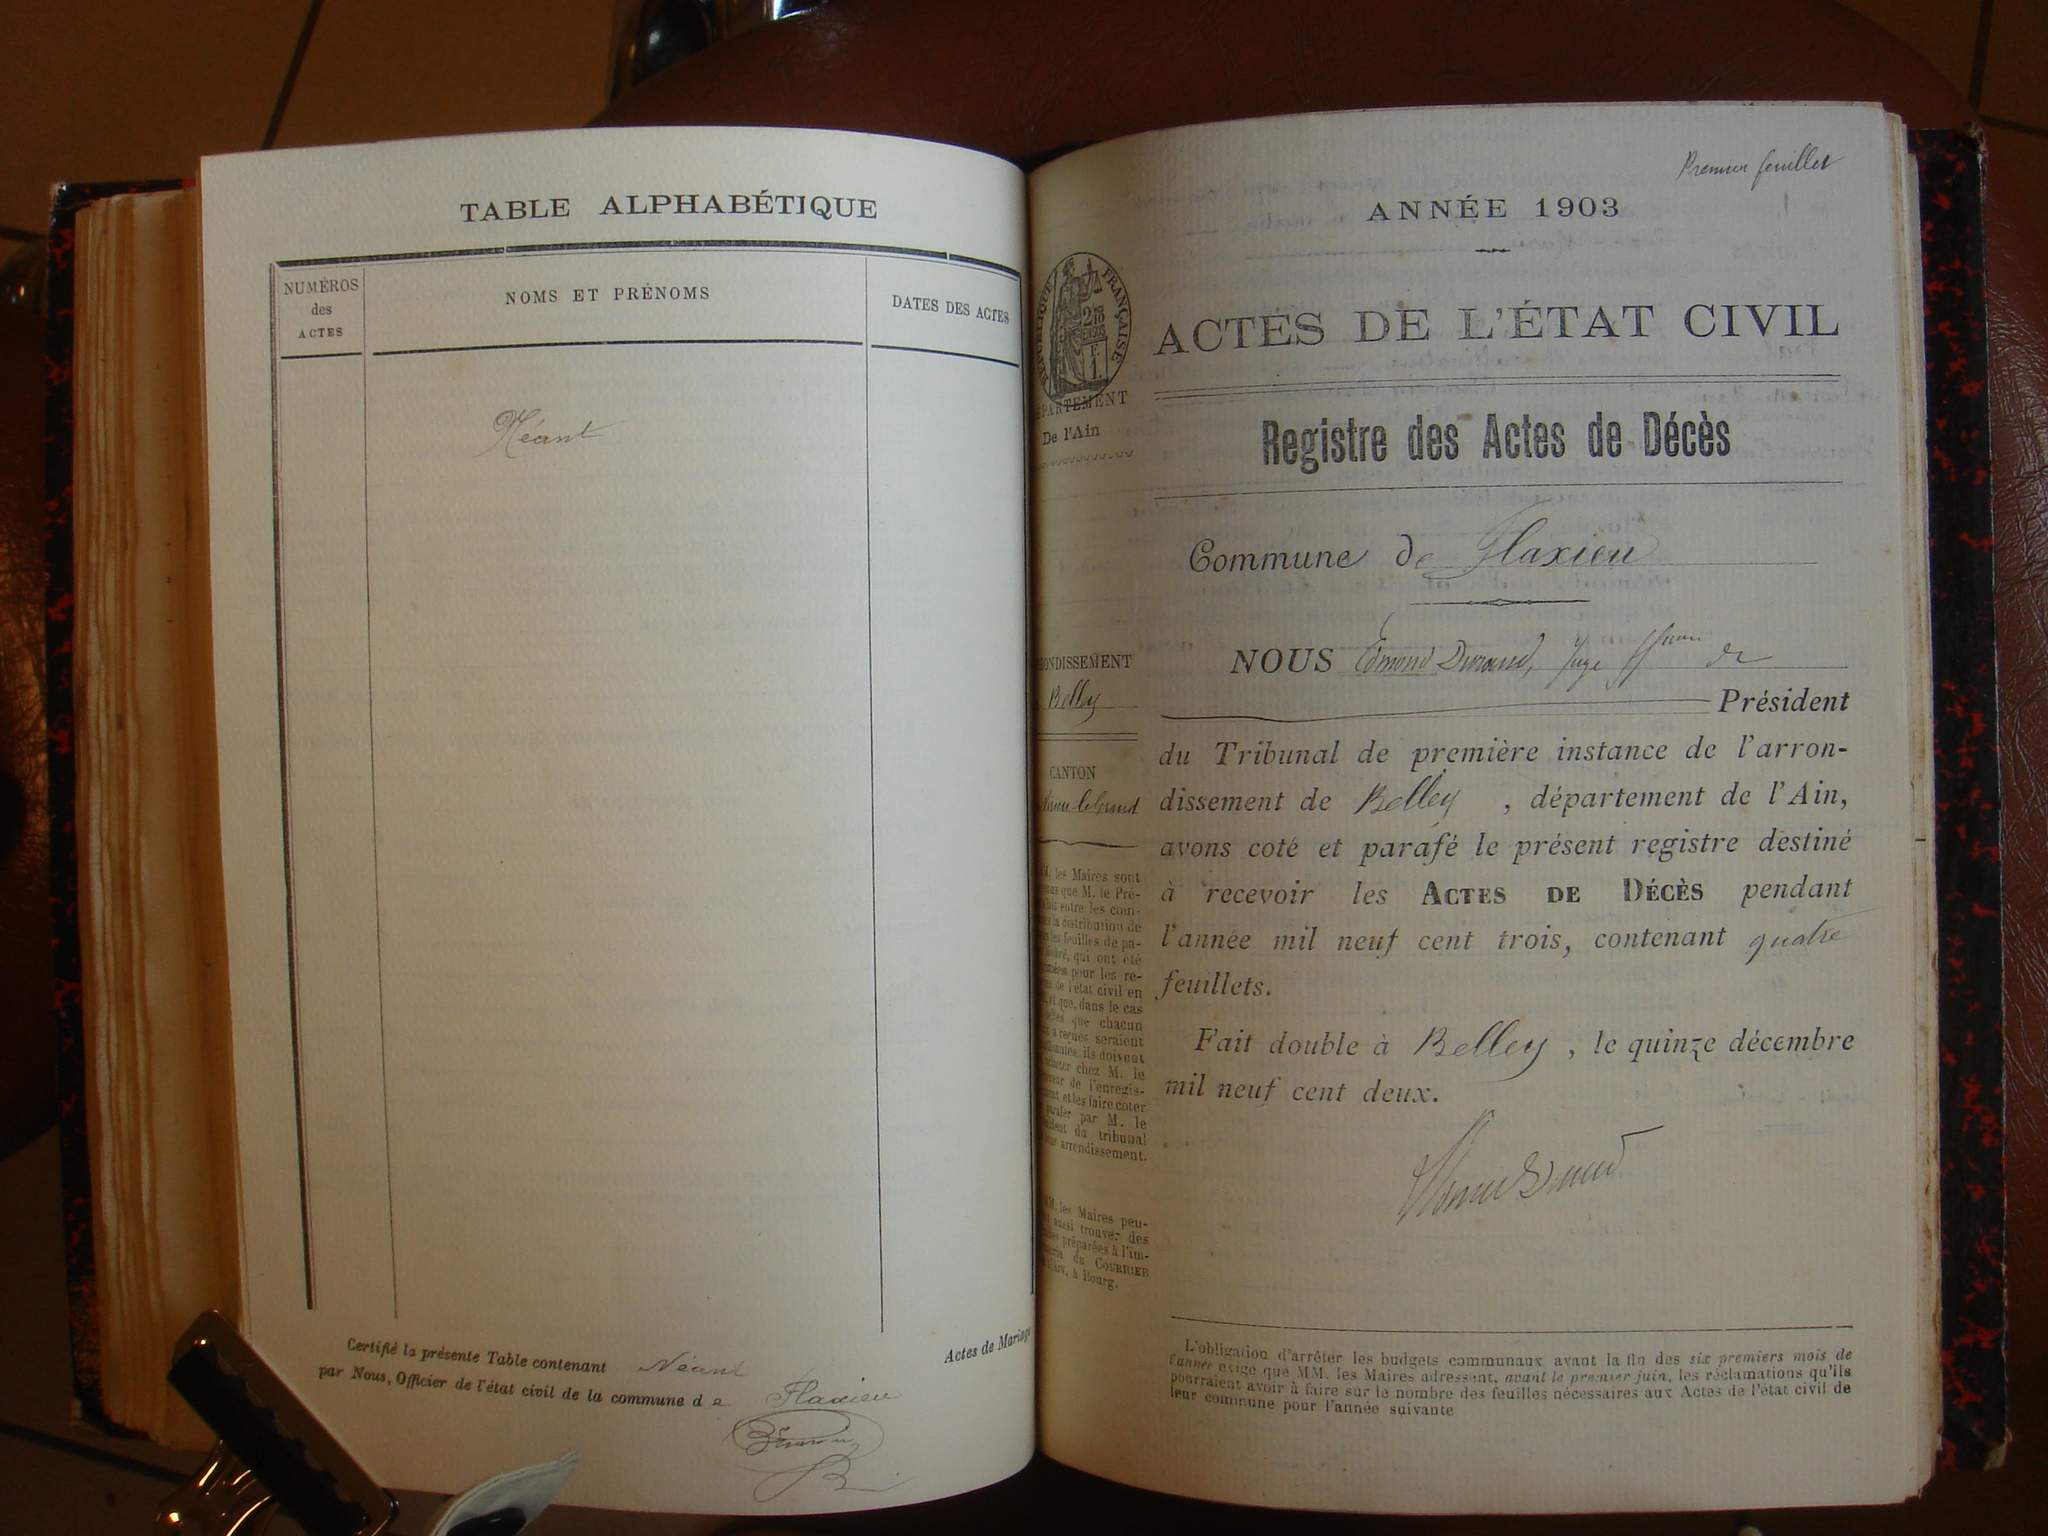 TABLE ALPHABÉTIQUE
NUMÉROS
des
ACTES
NOMS ET PRÉNOMS
DATES DES ACTES
Néant
Certifié la présente Table contenant Néant
Actes de Mariage
par Nous, Officier de l'état civil de la commune de Flaxieu
Premier feuillet
ANNÉE 1903
RÉPUBLIQUE FRANÇAISE
ACTES DE L'ÉTAT CIVIL
De l'Ain
Registre des Actes de Décès
Commune de Flaxieu
NOUS Edmond Durand, Juge de
Président
Belley
du Tribunal de première instance de l'arron-
CANTON
dissement de Belley, département de l'Ain,
avons coté et parafé le présent registre destiné
à recevoir les ACTES DE DÉCÈS pendant
l'année mil neuf cent trois, contenant quatre
feuillets.
Fait double à Belley, le quinze décembre
mil neuf cent deux.
les Maires sont
que M. le Pré-
entre les com-
la distribution de
les feuilles de pa-
qui ont été
pour les re-
de l'état civil en
et que, dans le cas
que chacun
a reçues seraient
ils doivent
chez M. le
de l'enregis-
et les faire coter
parafer par M. le
du tribunal
arrondissement.
les Maires peu-
aussi trouver des
préparées à l'im-
du COURRIER
à Bourg.
L'obligation d'arrêter les budgets communaux avant la fin des six premiers mois de
l'année exige que MM. les Maires adressent, avant le premier juin, les réclamations qu'ils
pourraient avoir à faire sur le nombre des feuilles nécessaires aux Actes de l'état civil de
leur commune pour l'année suivante